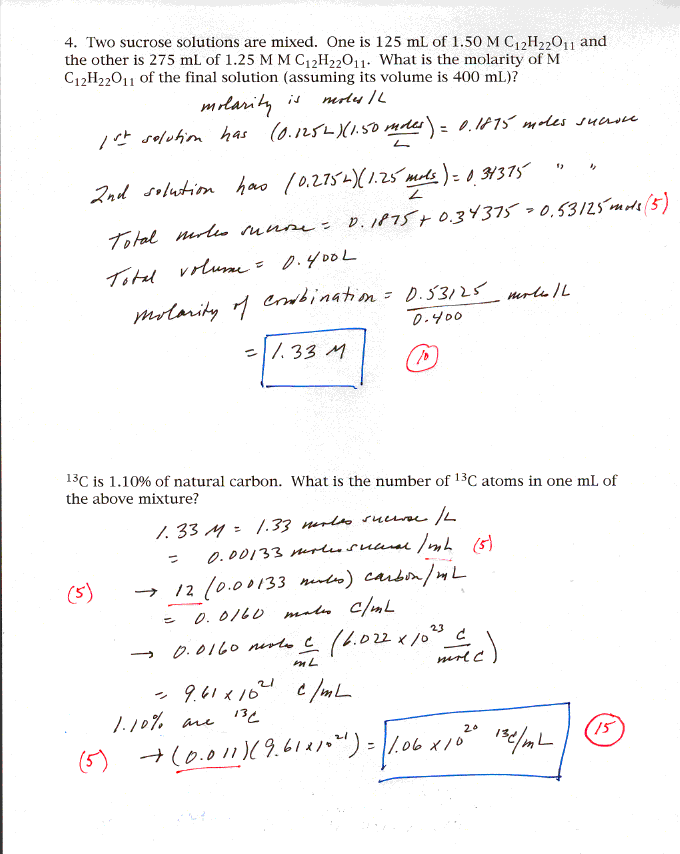 4. Two sucrose solutions are mixed. One is 125 mL of 1.50 M C12H22O11 and
the other is 275 mL of 1.25 M M C12H22O11. What is the molarity of M
C12H22O11 of the final solution (assuming its volume is 400 mL)?
molarity is moles/L
1st solution has (0.125L)(1.50 moles/L) = 0.1875 moles sucrose
2nd solution has (0.275L)(1.25 mols/L) = 0.34375 " "
Total moles sucrose = 0.1875 + 0.34375 = 0.53125 mols (5)
Total volume = 0.400L
molarity of combination = 0.53125/0.400 moles/L
= 1.33 M (10)
13C is 1.10% of natural carbon. What is the number of 13C atoms in one mL of
the above mixture?
1.33 M = 1.33 moles sucrose/L
= 0.00133 moles sucrose/mL (5)
(5) → 12 (0.00133 moles) carbon/mL
= 0.0160 moles C/mL
→ 0.0160 moles C/mL (6.022 x 10^23 C/mole C)
= 9.61 x 10^21 C/mL
1.10% are 13C
(5) → (0.011)(9.61 x 10^21) = 1.06 x 10^20 13C/mL (15)